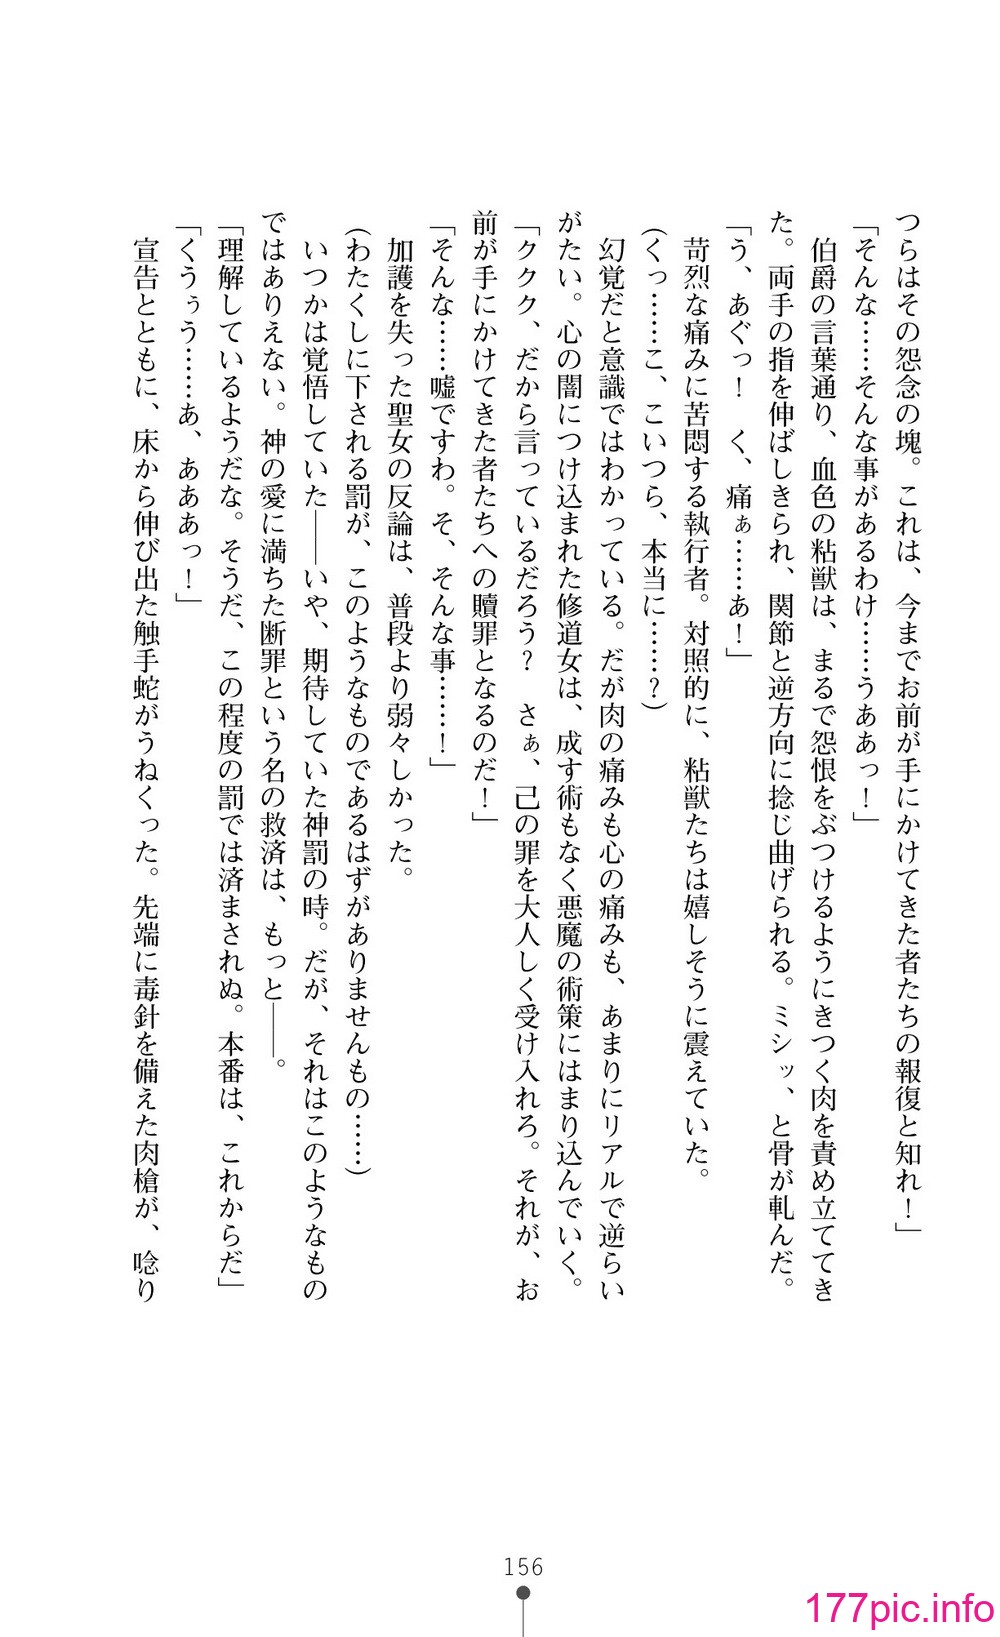 つらはその怨念の塊。これは、今までお前が手にかけてきた者たちの報復と知れ！」
「そんな……そんな事があるわけ……うああっ！」
　伯爵の言葉通り、血色の粘獣は、まるで怨恨をぶつけるようにきつく肉を責め立ててき
た。両手の指を伸ばしきられ、関節と逆方向に捻じ曲げられる。ミシッ、と骨が軋んだ。
「う、あぐっ！　く、痛ぁ……あ！」
　苛烈な痛みに苦悶する執行者。対照的に、粘獣たちは嬉しそうに震えていた。
（くっ……こ、こいつら、本当に……？）
　幻覚だと意識ではわかっている。だが肉の痛みも心の痛みも、あまりにリアルで逆らい
がたい。心の闇につけ込まれた修道女は、成す術もなく悪魔の術策にはまり込んでいく。
「ククク、だから言っているだろう？　さぁ、己の罪を大人しく受け入れろ。それが、お
前が手にかけてきた者たちへの贖罪となるのだ！」
「そんな……嘘ですわ。そ、そんな事……！」
　加護を失った聖女の反論は、普段より弱々しかった。
（わたくしに下される罰が、このようなものであるはずがありませんもの……）
　いつかは覚悟していた――いや、期待していた神罰の時。だが、それはこのようなもの
ではありえない。神の愛に満ちた断罪という名の救済は、もっと――。
「理解しているようだな。そうだ、この程度の罰では済まされぬ。本番は、これからだ」
「くうぅう……あ、あああっ！」
　宣告とともに、床から伸び出た触手蛇がうねくった。先端に毒針を備えた肉槍が、唸り
156
177pic.info